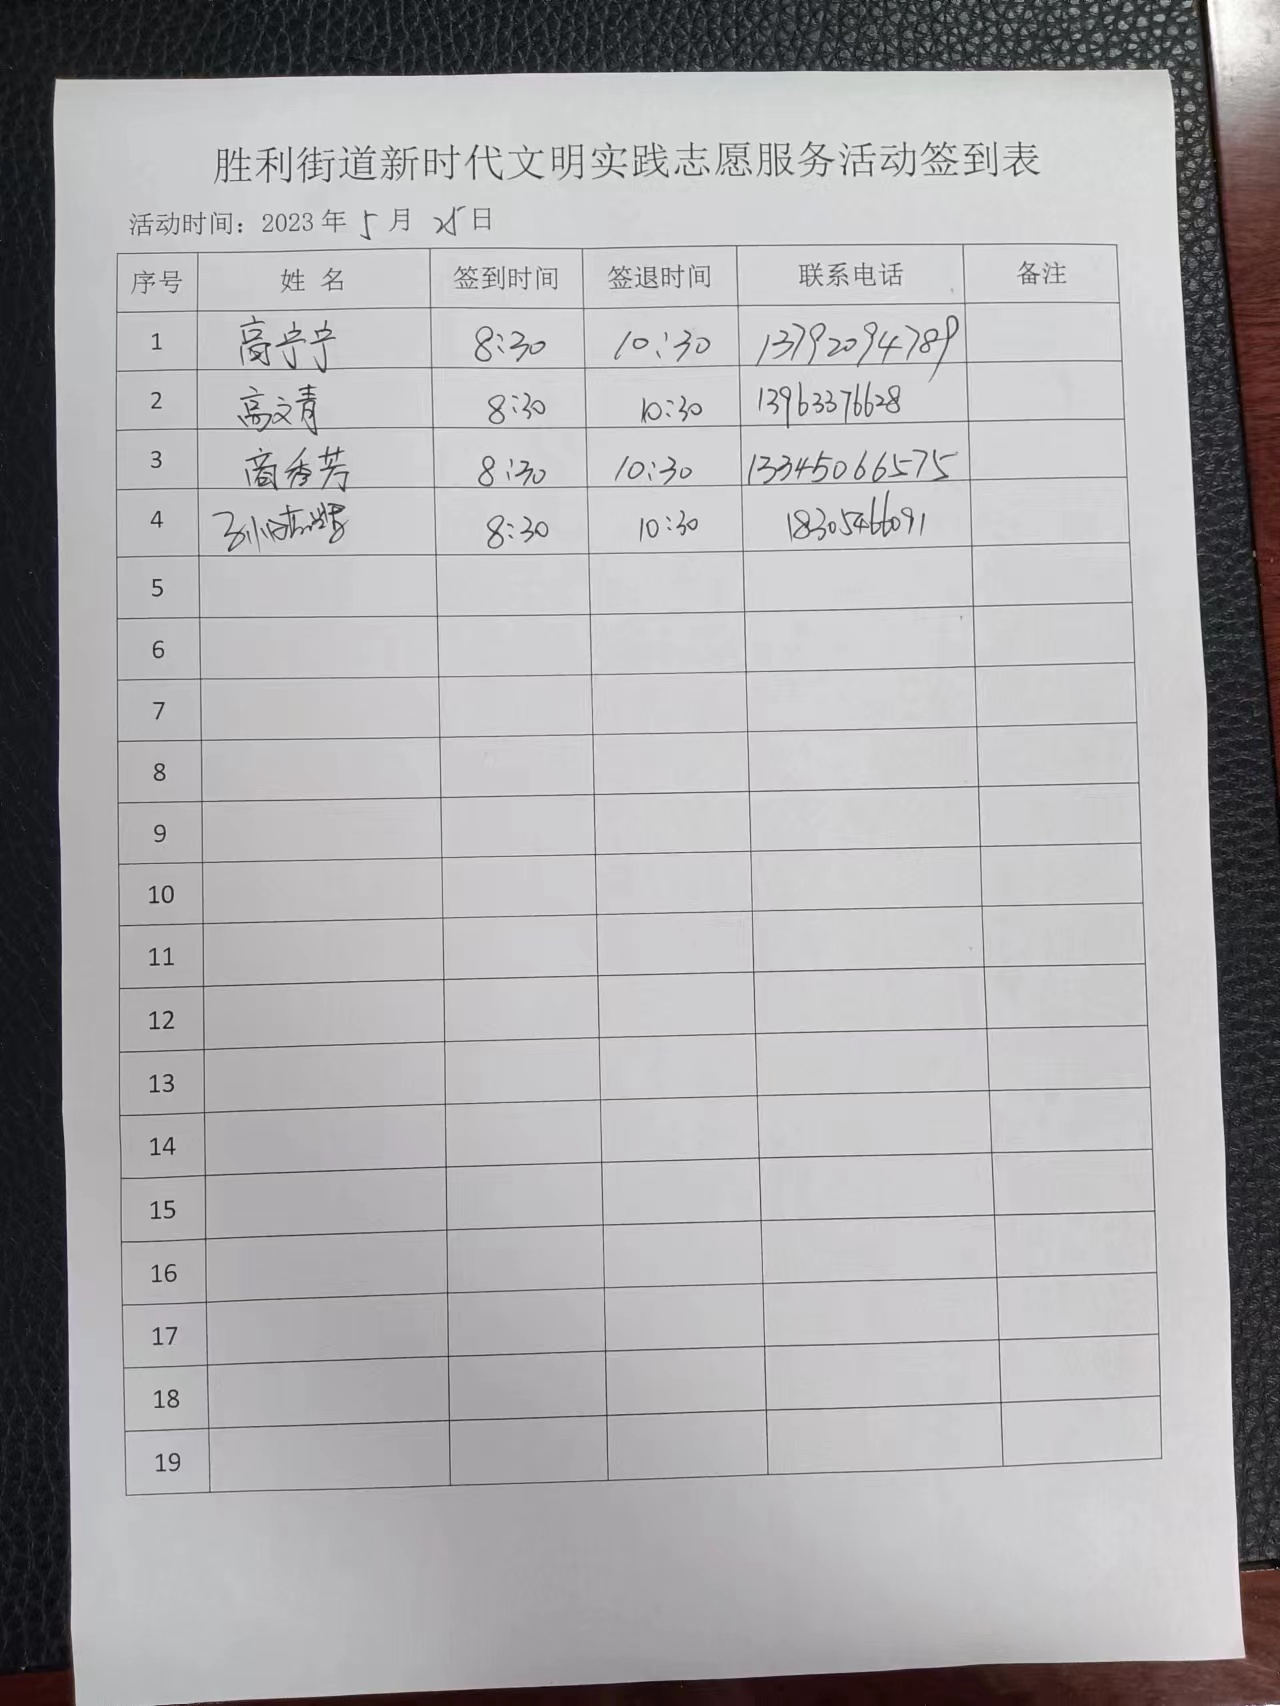 胜利街道新时代文明实践志愿服务活动签到表
活动时间：2023年5月25日
序号 姓 名 签到时间 签退时间 联系电话 备注
1 高宁宁 8:30 10:30 13792094789
2 高文青 8:30 10:30 13963376628
3 商秀芳 8:30 10:30 13345066575
4 8:30 10:30 18305466091
5
6
7
8
9
10
11
12
13
14
15
16
17
18
19